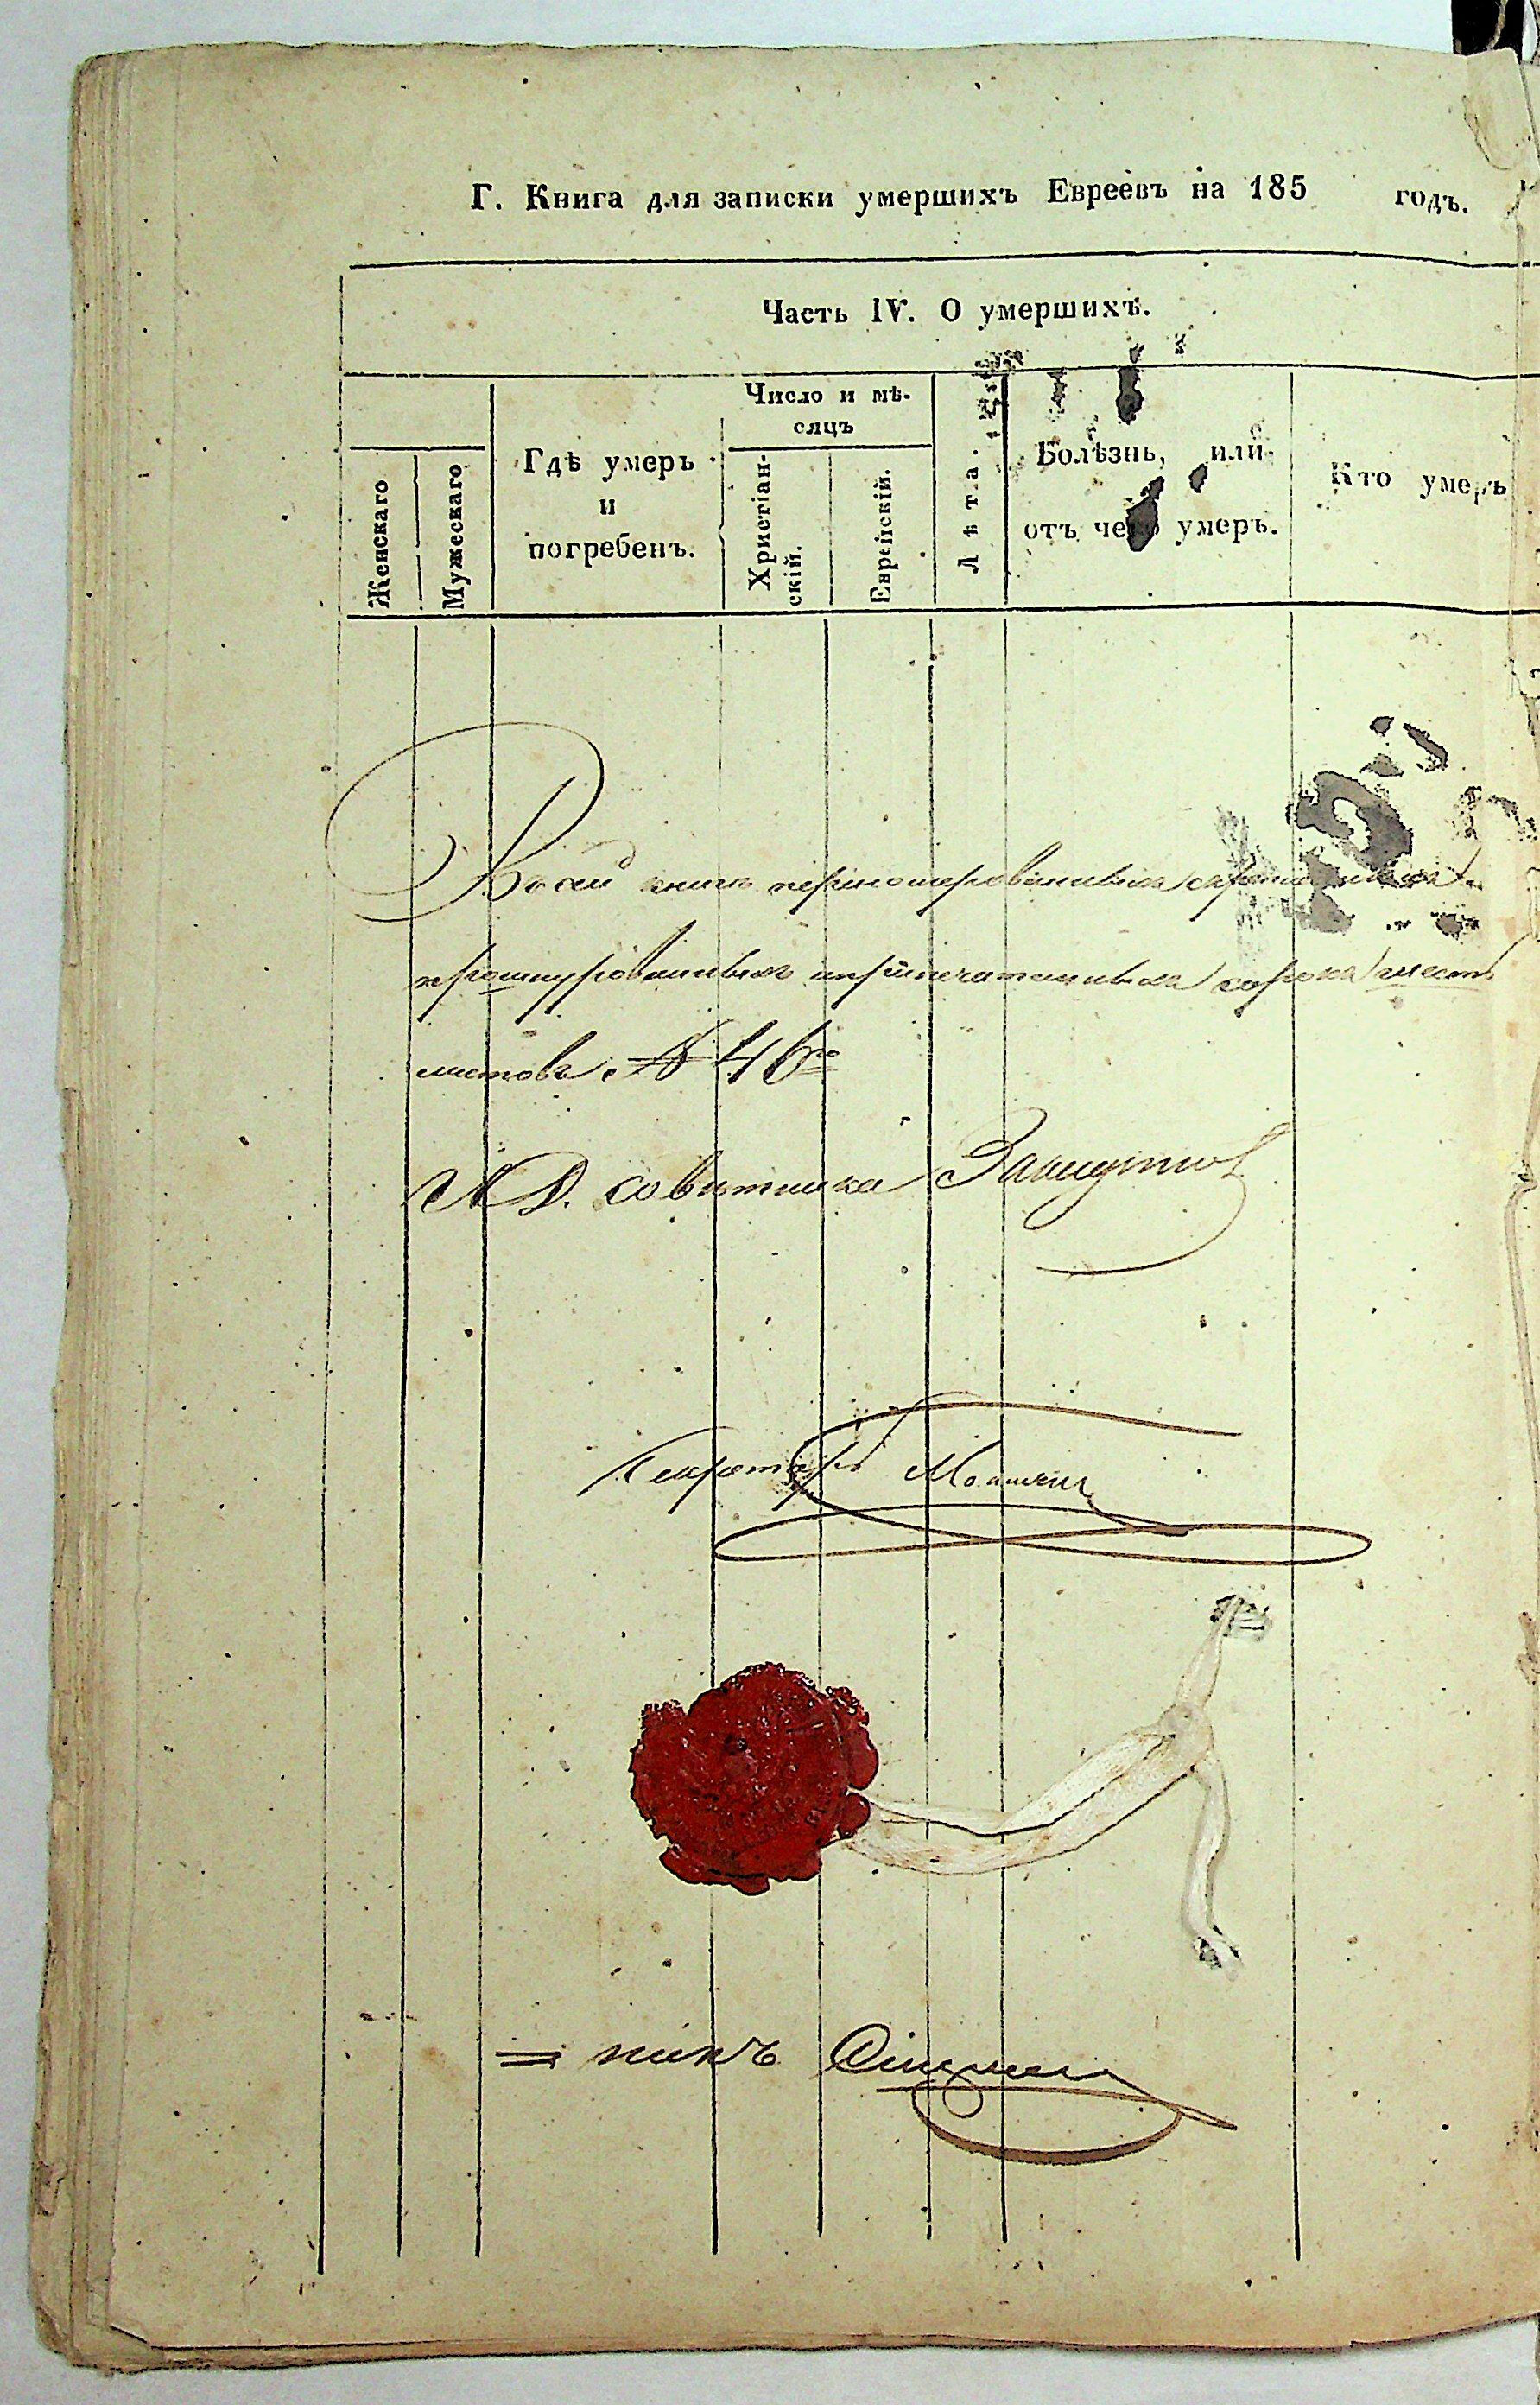 Г. Книга для записки умершихъ Евреевъ на 185 годъ.
Часть IV. О умершихъ.
Женскаго
Мужескаго
Гдѣ умеръ
и
погребенъ.
Число и мѣ-
сяцъ
Христіан-
скій.
Еврейскій.
Лѣта.
Болѣзнь, или
отъ чего умеръ.
Кто умеръ
В сей книгѣ перномерованныхъ
прошнурованныхъ иприпечатанныхъ сорокъ шесть
листовъ. № 46
И. Д. совѣтника
Секретарь